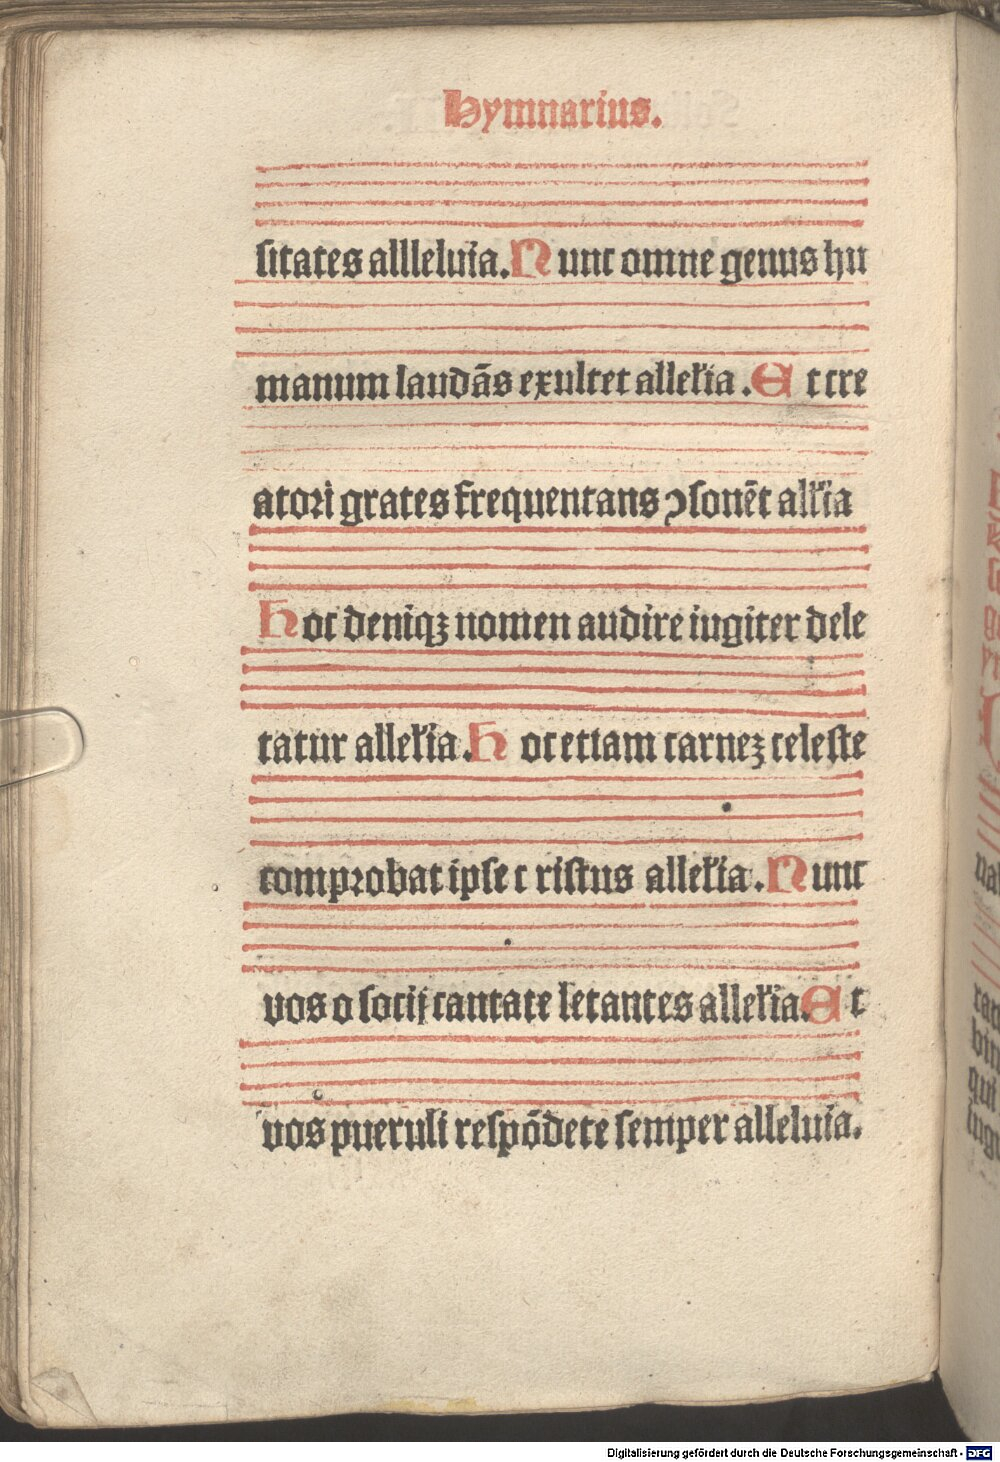 Hymnarius.
sitates allleluia. Nunc omne genus hu
manum laudãs exultet allel'ia . Et cre
atori grates frequentans ꝯsonẽt all'ia
Hoc deniqꝫ nomen audire iugiter dele
tatur allel'ia. Hoc etiam carneꝫ celeste
comprobat ipse c ristus allel'ia . Nunc
vos o socij cantate letantes allel'ia. Et
vos pueruli respõdete semper alleluia.
Digitalisierung gefördert durch die Deutsche Forschungsgemeinschaft - DFG